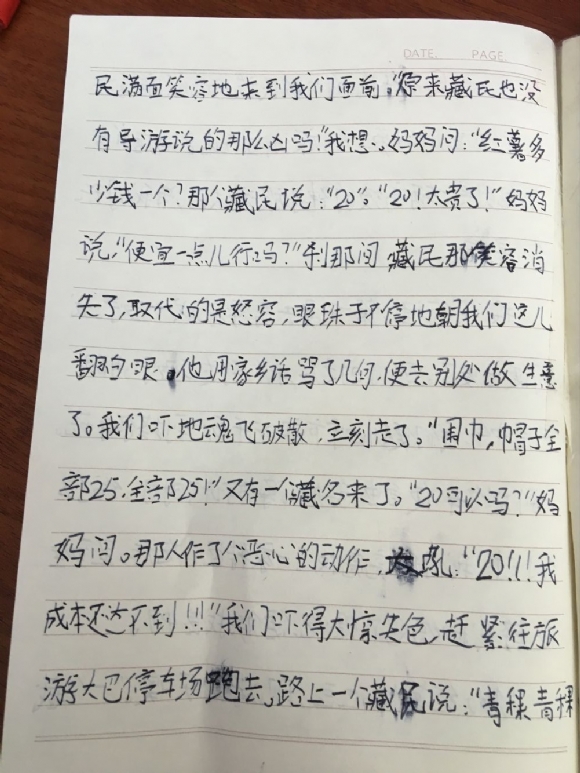 DATE. PAGE.
民满面笑容地来到我们面前。“原来藏民也没
有导游说的那么凶吗！”我想。妈妈问：“红薯多
少钱一个？那个藏民说：“20”。“20！太贵了！”妈妈
说，“便宜一点儿行吗？”刹那间 藏民那笑容消
失了，取代的是怒容，眼珠子不停地朝我们这儿
翻白眼。他用家乡话骂了几句，便去别处做生意
了。我们吓地魂飞破散，立刻走了。“围巾，帽子全
部25，全部25！”又有一个藏名来了。“20可以吗？”妈
妈问。那人作了个恶心的动作，大吼：“20！！我
成本还达不到！！！”我们吓得大惊失色，赶紧往旅
游大巴停车场跑去，路上一个藏民说：“青稞青稞